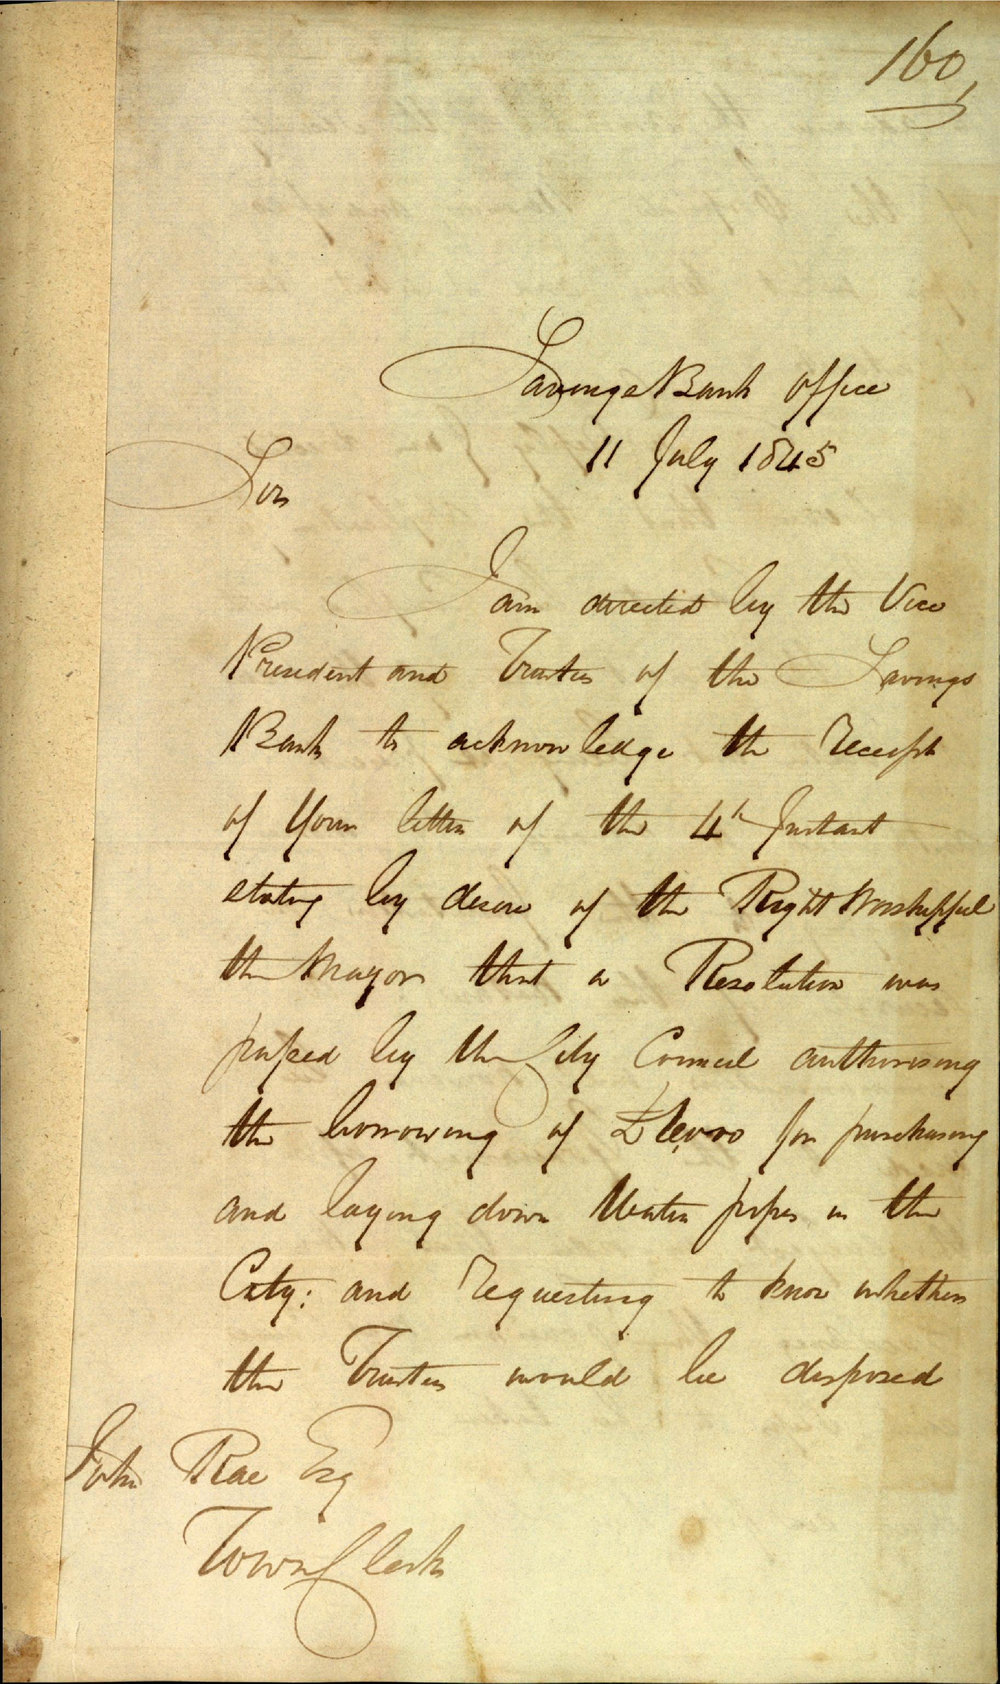 160,
Savings Bank Office
11 July 1845
Sir
I am directed by the Vice
President and Trustees of the Savings
Bank to acknowledge the receipt
of Your letter of the 4th Instant
stating by desire of the Right Worshipful
the Mayor that a Resolution was
passed by the City Council authorising
the borrowing of for purchasing
and laying down Water pipes in the
City: and requesting to know whether
the Trustees would be disposed
John Rae Esq
Town Clerk